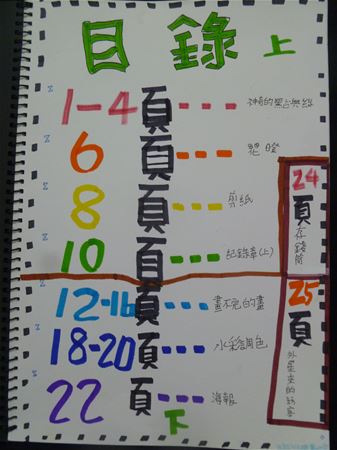 目錄 上
1-4頁 神奇的墨點與線
6頁
8頁 剪紙
10頁 紀錄本(上)
12-16頁 畫不完的畫
18-20頁 水彩調色
22頁 海報
下
24頁 存錢筒
25頁 外星來的訪客